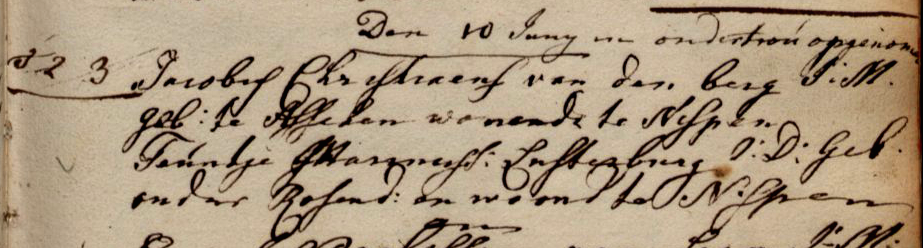 Den 10 Juny in ondertroú opgenom
1 2 3 Jacobus Christiaens van den berg J: M.
geb: te Esschen wonende te Nispen
Teuntje J: D: Geb.
onder Rosend: en woond te Nispen